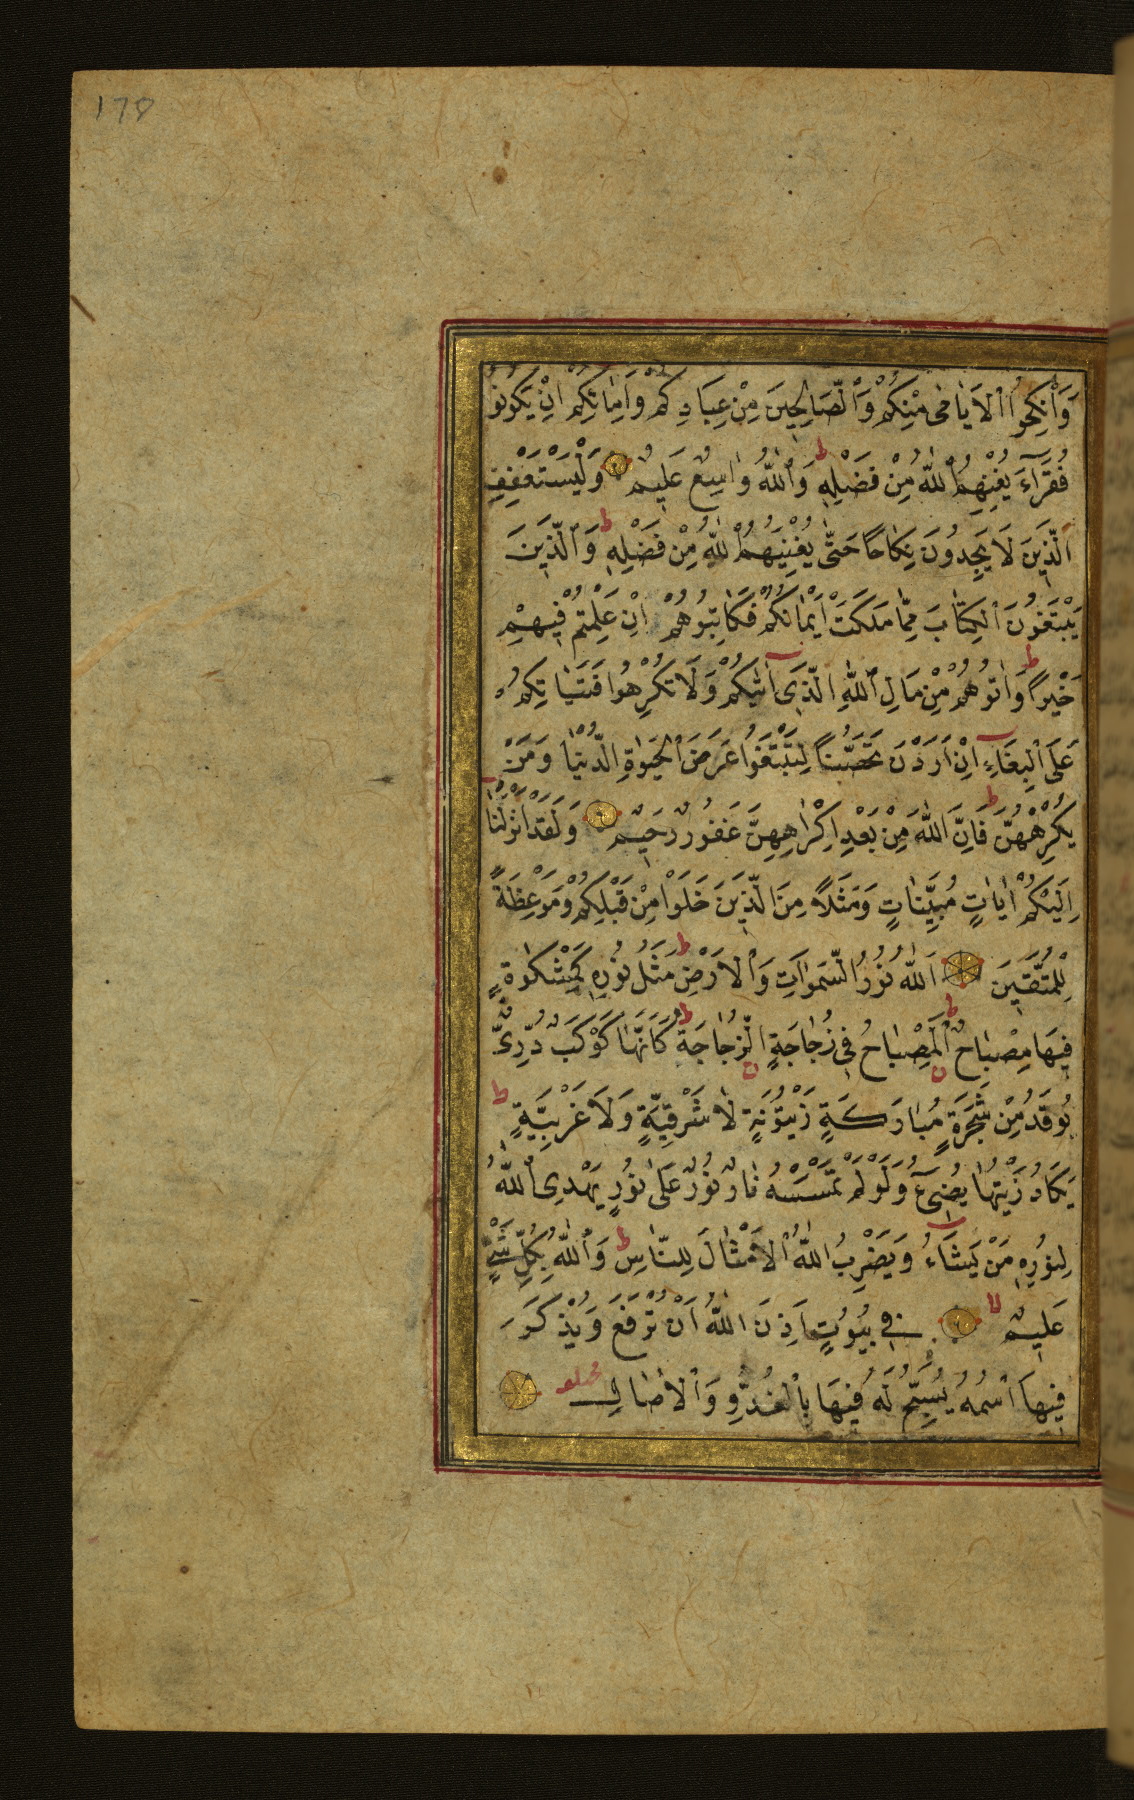 178
وَاَنْكِحُوا الْاَيَامٰى مِنْكُمْ وَالصَّالِحِينَ مِنْ عِبَادِكُمْ وَاِمَائِكُمْ اِنْ يَكُونُوا
فُقَرَاءَ يُغْنِهِمُ اللّٰهُ مِنْ فَضْلِهِ ط وَاللّٰهُ وَاسِعٌ عَلِيمٌ وَلْيَسْتَعْفِفِ
الَّذِينَ لَا يَجِدُونَ نِكَاحًا حَتّٰى يُغْنِيَهُمُ اللّٰهُ مِنْ فَضْلِهِ ط وَالَّذِينَ
يَبْتَغُونَ الْكِتَابَ مِمَّا مَلَكَتْ اَيْمَانُكُمْ فَكَاتِبُوهُمْ اِنْ عَلِمْتُمْ فِيهِمْ
خَيْرًا وَاٰتُوهُمْ مِنْ مَالِ اللّٰهِ الَّذِى اٰتٰيكُمْ ط وَلَا تُكْرِهُوا فَتَيَاتِكُمْ
عَلَى الْبِغَاءِ اِنْ اَرَدْنَ تَحَصُّنًا لِتَبْتَغُوا عَرَضَ الْحَيٰوةِ الدُّنْيَا ط وَمَنْ
يُكْرِهْهُنَّ فَاِنَّ اللّٰهَ مِنْ بَعْدِ اِكْرَاهِهِنَّ غَفُورٌ رَحِيمٌ وَلَقَدْ اَنْزَلْنَا
اِلَيْكُمْ اٰيَاتٍ مُبَيِّنَاتٍ وَمَثَلًا مِنَ الَّذِينَ خَلَوْا مِنْ قَبْلِكُمْ وَمَوْعِظَةً
لِلْمُتَّقِينَ اَللّٰهُ نُورُ السَّمٰوَاتِ وَالْاَرْضِ ط مَثَلُ نُورِهِ كَمِشْكٰوةٍ
فِيهَا مِصْبَاحٌ ط اَلْمِصْبَاحُ فِى زُجَاجَةٍ ط اَلزُّجَاجَةُ كَاَنَّهَا كَوْكَبٌ دُرِّىٌّ
يُوقَدُ مِنْ شَجَرَةٍ مُبَارَكَةٍ زَيْتُونَةٍ لَا شَرْقِيَّةٍ وَلَا غَرْبِيَّةٍ ط
يَكَادُ زَيْتُهَا يُضِىءُ وَلَوْ لَمْ تَمْسَسْهُ نَارٌ نُورٌ عَلٰى نُورٍ يَهْدِى اللّٰهُ
لِنُورِهِ مَنْ يَشَاءُ وَيَضْرِبُ اللّٰهُ الْاَمْثَالَ لِلنَّاسِ ط وَاللّٰهُ بِكُلِّ شَىْءٍ
عَلِيمٌ لا فِى بُيُوتٍ اَذِنَ اللّٰهُ اَنْ تُرْفَعَ وَيُذْكَرَ
فِيهَا اسْمُهُ يُسَبِّحُ لَهُ فِيهَا بِالْغُدُوِّ وَالْاٰصَالِ